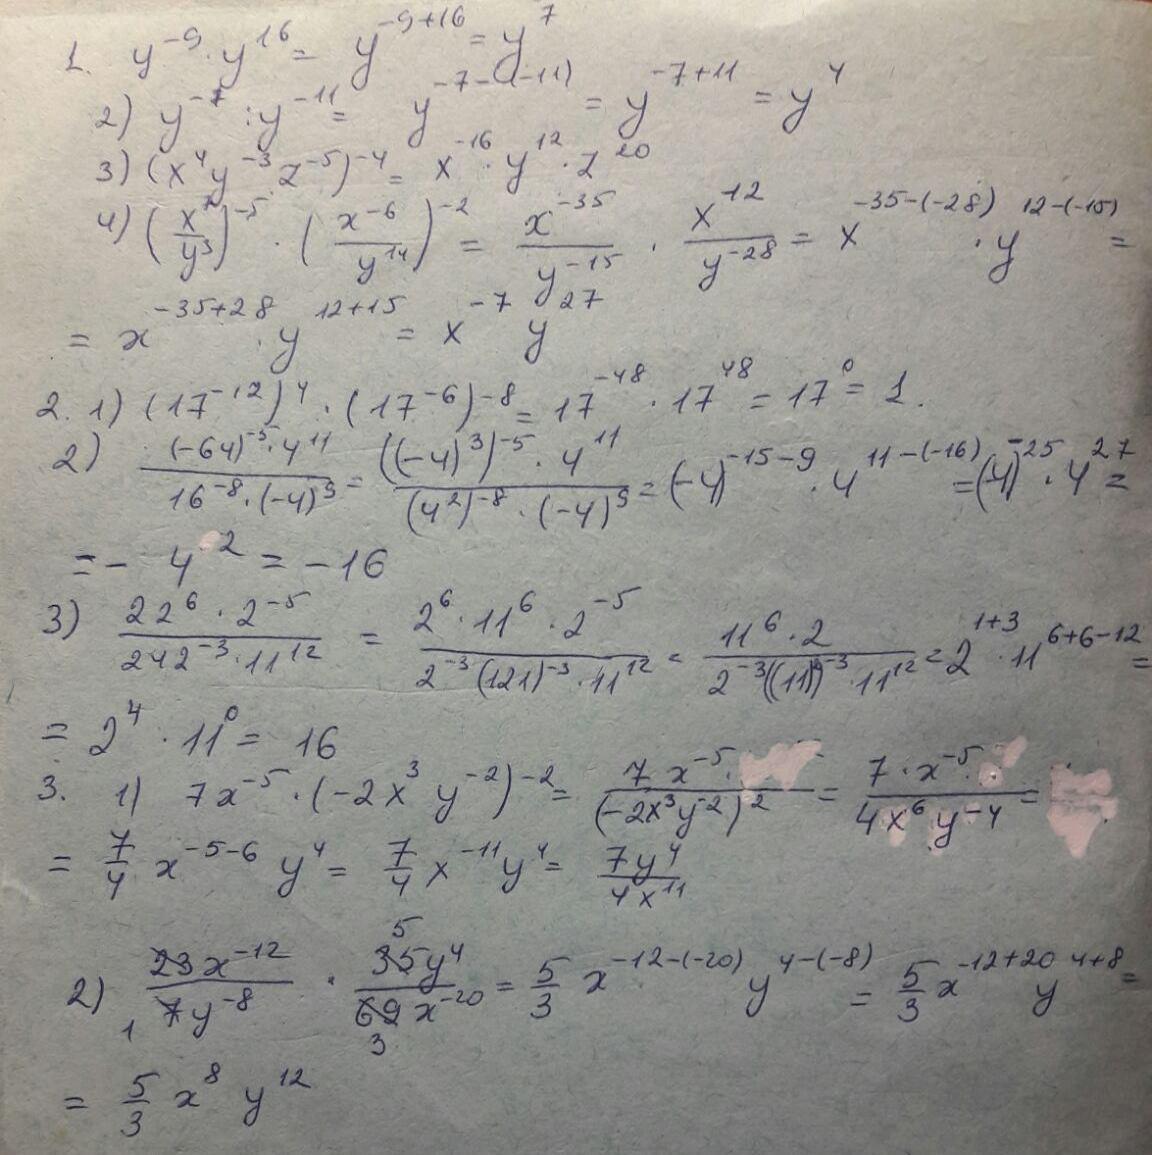 1. y^-9 · y^16 = y^-9+16 = y^7
2) y^-7 : y^-11 = y^-7-(-11) = y^-7+11 = y^4
3) (x^4 y^-3 z^-5)^-4 = x^-16 · y^12 · z^20
4) (x^7/y^3)^-5 · (x^-6/y^14)^-2 = x^-35/y^-15 · x^12/y^-28 = x^-35-(-28) · y^12-(-15) =
= x^-35+28 · y^12+15 = x^-7 y^27
2. 1) (17^-12)^4 · (17^-6)^-8 = 17^-48 · 17^48 = 17^0 = 1.
2) (-64)^-5 · 4^11 / 16^-8 · (-4)^9 = ((-4)^3)^-5 · 4^11 / (4^2)^-8 · (-4)^9 = (-4)^-15-9 · 4^11-(-16) = (-4)^-25 · 4^27 =
= - 4^2 = -16
3) 22^6 · 2^-5 / 242^-3 · 11^12 = 2^6 · 11^6 · 2^-5 / 2^-3 (121)^-3 · 11^12 = 11^6 · 2 / 2^-3 ((11)^2)^-3 · 11^12 = 2^1+3 · 11^6+6-12 =
= 2^4 · 11^0 = 16
3. 1) 7x^-5 · (-2x^3 y^-2)^-2 = 7x^-5 · / (-2x^3 y^-2)^2 = 7 · x^-5 · / 4x^6 y^-4 =
= 7/4 x^-5-6 y^4 = 7/4 x^-11 y^4 = 7y^4 / 4x^11
2) 23x^-12 / 7y^-8 1 · 5 35y^4 / 69x^-20 3 = 5/3 x^-12-(-20) y^4-(-8) = 5/3 x^-12+20 y^4+8 =
= 5/3 x^8 y^12